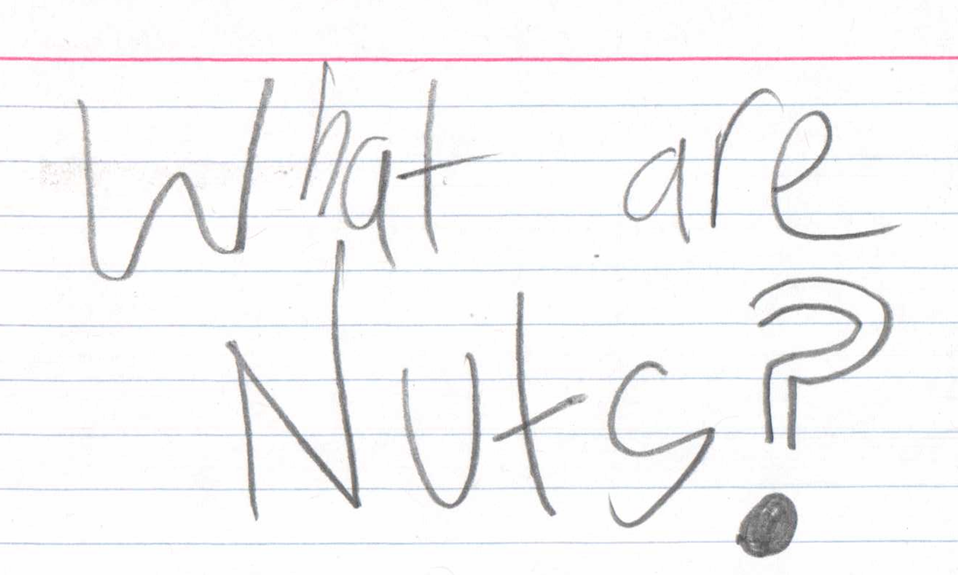 What are
Nuts?